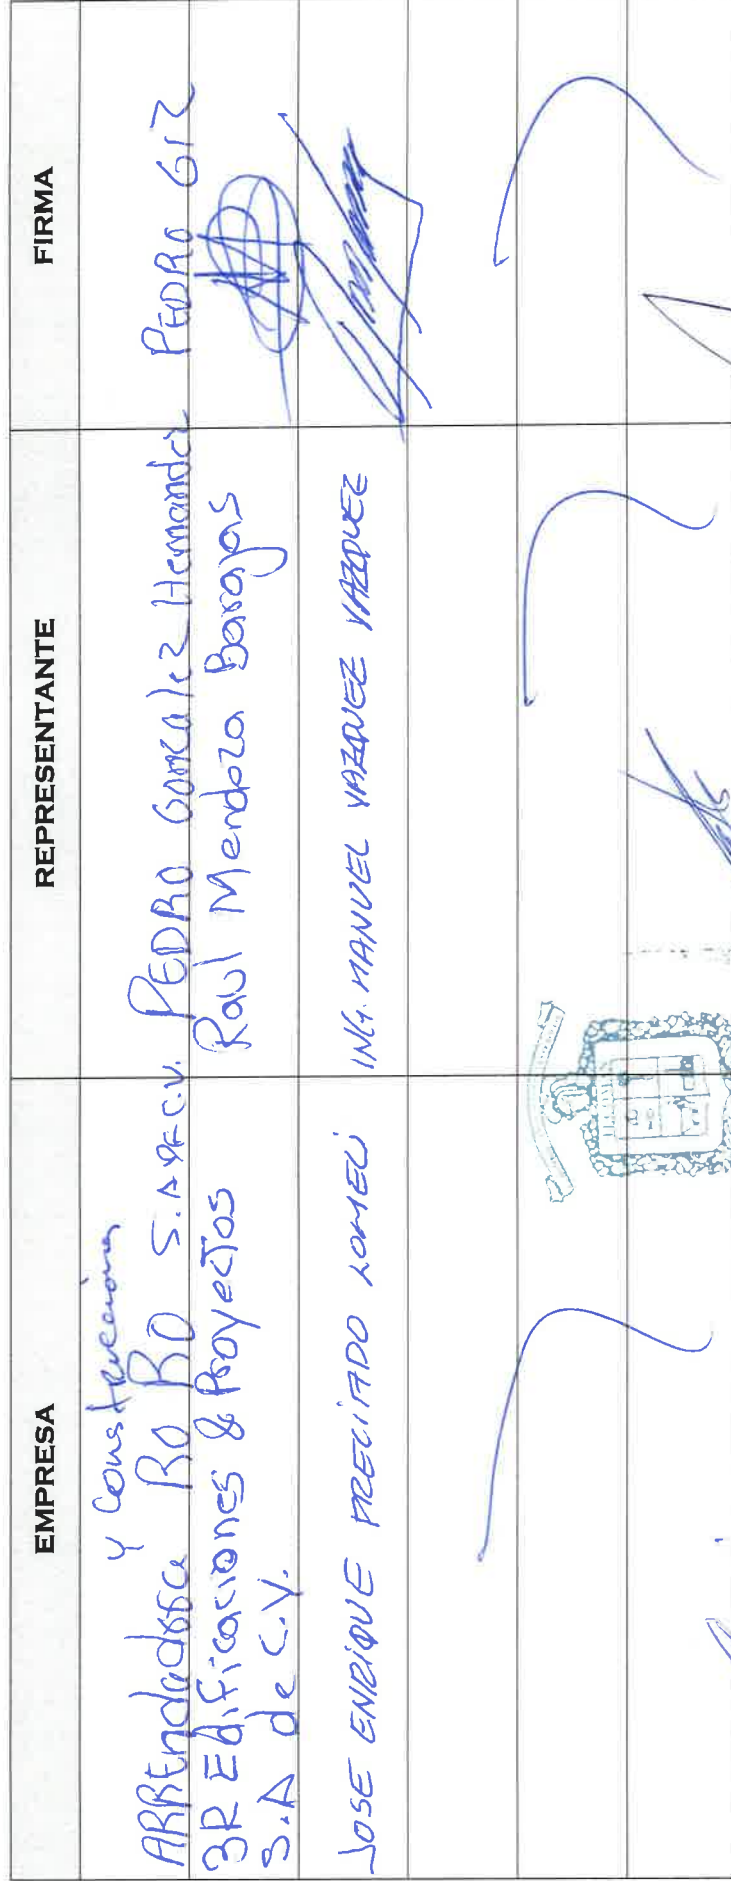 EMPRESA
REPRESENTANTE
FIRMA
Y Construcciones
ARRENdadora RO RO S.A DE C.V.
PEDRO Gonzalez Hernandez
PEDRO G
3R Edificaciones & Proyectos
S.A de C.V.
Raul Mendoza Barajas
JOSE ENRIQUE PRECIADO LOMELI
ING. MANUEL VAZQUEZ VAZQUEZ